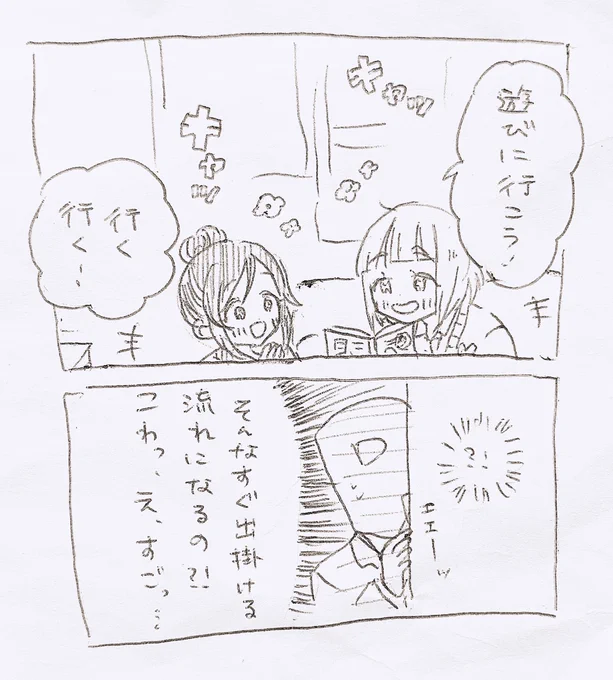 遊びに行こう〜
キャッ
キャッ
行く
行く〜
?!
エエーッ
そんなすぐ出掛ける
流れになるの?!
こわっ、え、すごっ…